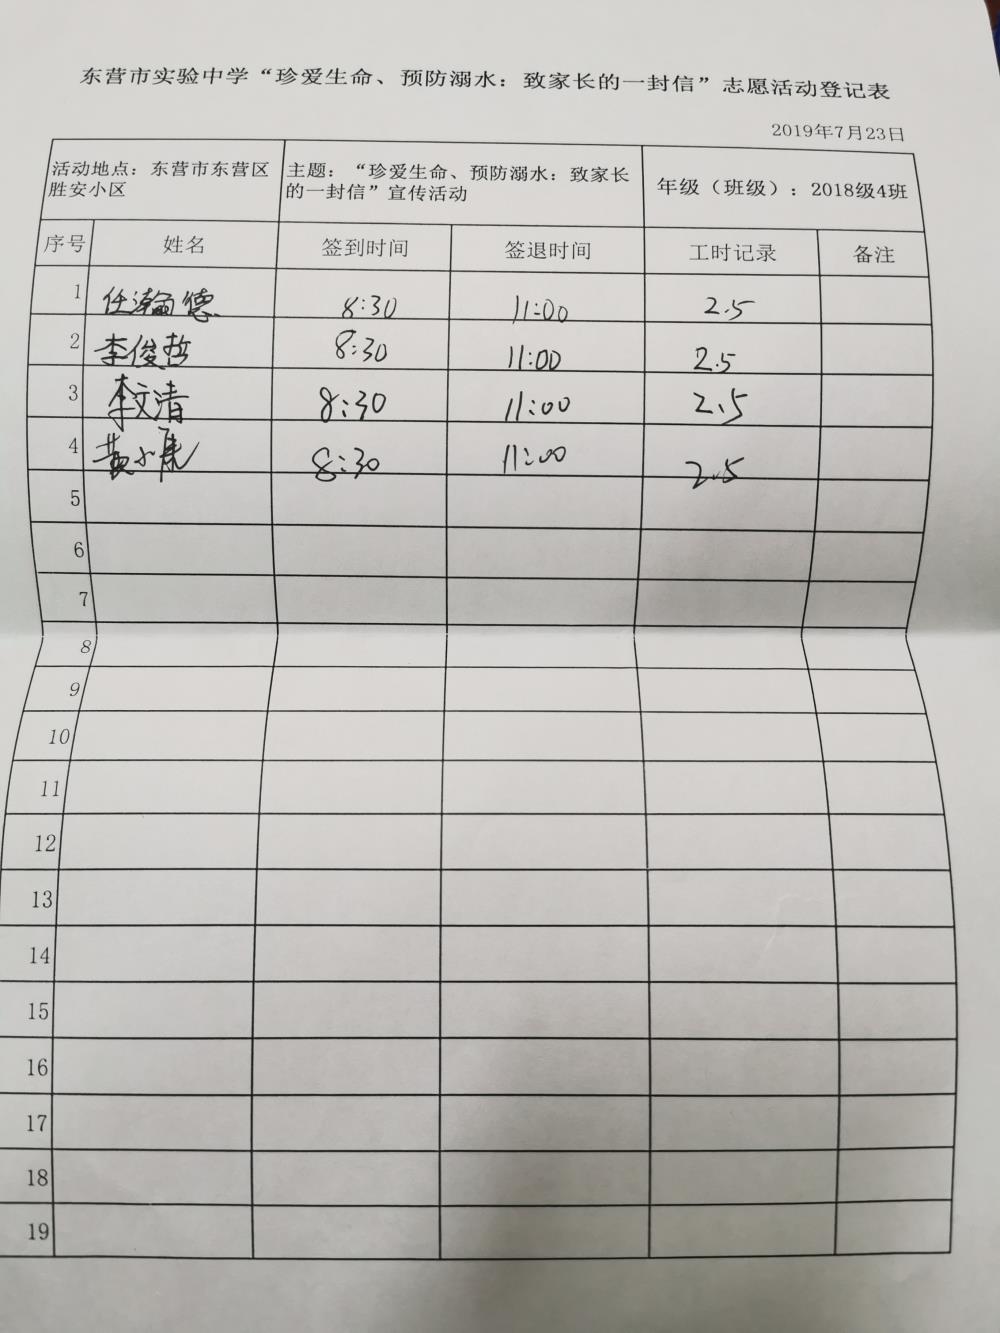 东营市实验中学“珍爱生命、预防溺水：致家长的一封信”志愿活动登记表
2019年7月23日
活动地点：东营市东营区
胜安小区
主题：“珍爱生命、预防溺水：致家长
的一封信”宣传活动
年级（班级）：2018级4班
序号 姓名 签到时间 签退时间 工时记录 备注
1 任瀚德 8:30 11:00 2.5
2 李俊哲 8:30 11:00 2.5
3 李文清 8:30 11:00 2.5
4 黄小 8:30 11:00 2.5
5
6
7
8
9
10
11
12
13
14
15
16
17
18
19